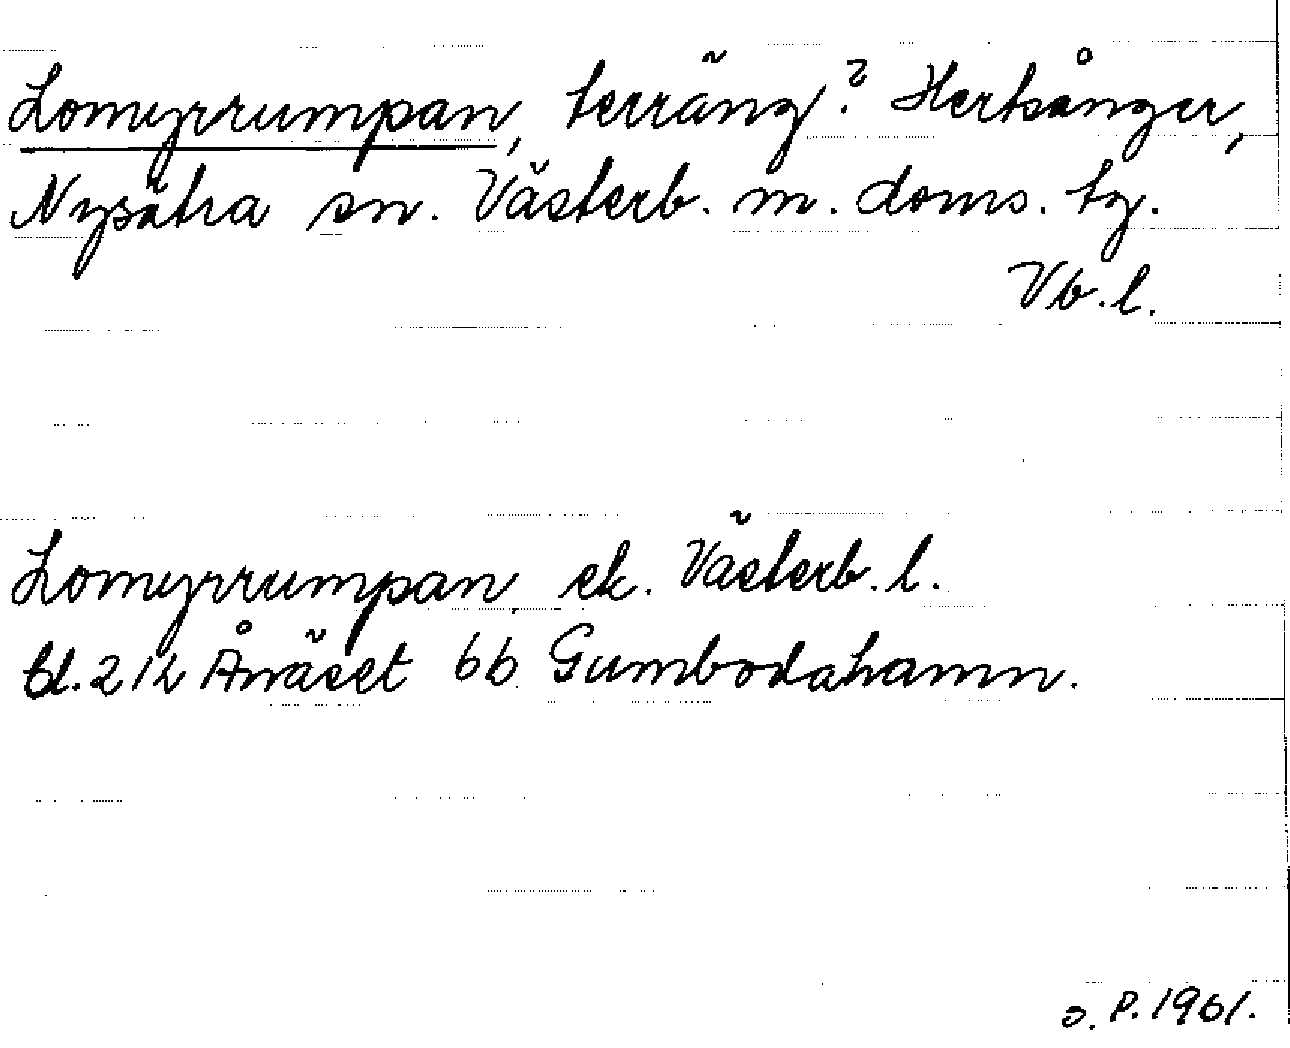 Lomyrrumpan, terräng? Hertsånger,
Nysätra sn. Västerb. m. doms. tg.
Vb. l.
Lomyrrumpan ek. Västerb. l.
bl. 212 Ånäset 6b Gumbodahamn.
o. P. 1961.